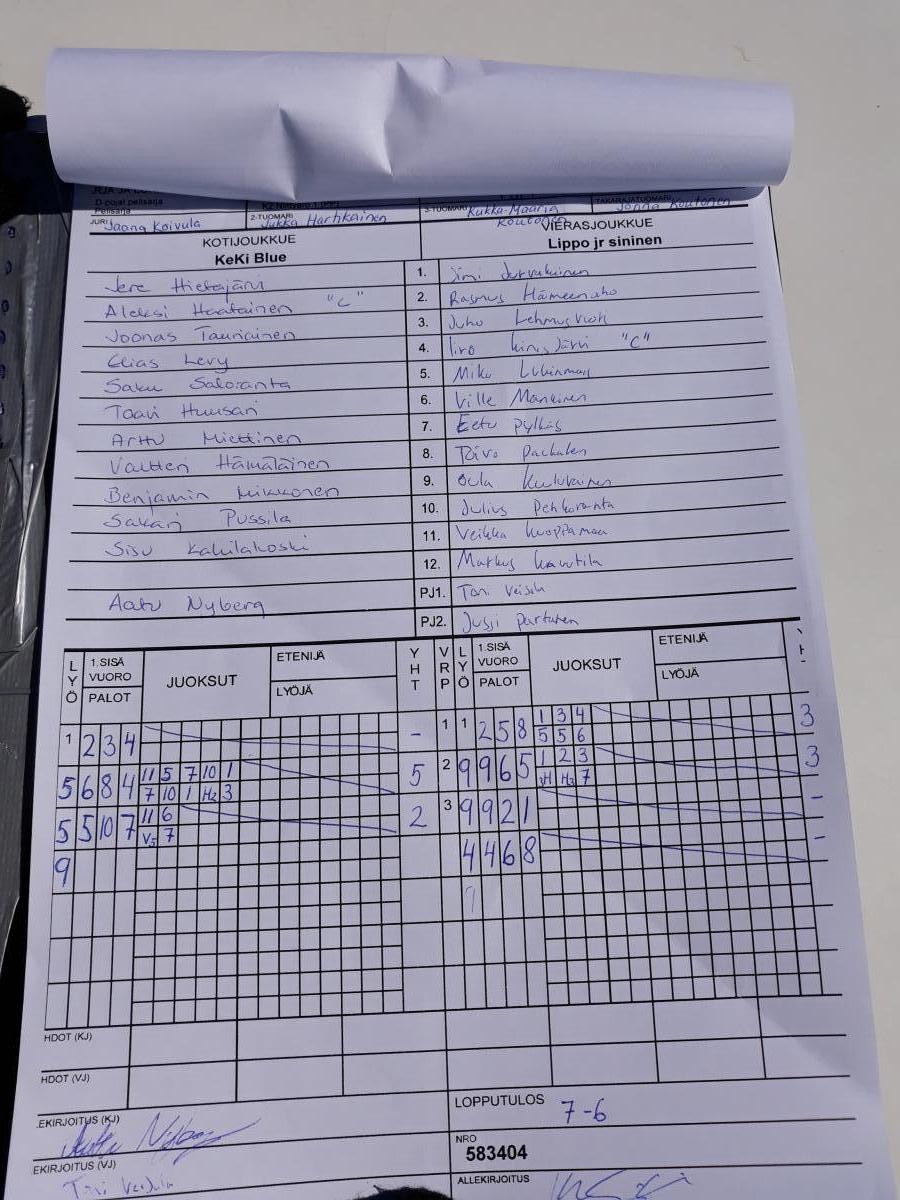 D-pojat pelisarja
Pelisarja
JURI Jaana Koivula 2-TUOMARI Jukka Hartikainen 3-TUOMARI Kukka-Maaria Koutonen TAKARAJATUOMARI Jonna Koutonen
KOTIJOUKKUE VIERASJOUKKUE
KeKi Blue Lippo jr sininen
Jere Hietajärvi 1. Jimi
Aleksi Haatainen "C" 2. Rasmus Hämeenaho
Joonas Tauriainen 3. Juho Lehmusvuori
Elias Levy 4. Iiro "C"
Saku Saloranta 5. Miku
Toavi Huusari 6. Ville Manninen
Arttu Miettinen 7. Eetu Pylkäs
Valtteri Hämäläinen 8. Toivo
Benjamin Mikkonen 9. Oula
Sakari Pussila 10. Julius Penkoranta
Sisu Kahilakoski 11. Veikka Kuoppamaa
12. Markus Kauttila
Aatu Nyberg PJ1. Toni
PJ2. Jussi Partanen
LYÖ 1.SISÄ VUORO PALOT JUOKSUT ETENIJÄ LYÖJÄ YHT VRP LYÖ 1.SISÄ VUORO PALOT JUOKSUT ETENIJÄ LYÖJÄ
1 2 3 4 - 1 1 2 5 8 1 3 4 3
5 5 6
5 6 8 4 11 5 7 10 1 5 2 9 9 6 5 1 2 3 3
7 10 1 H2 3 H2 7
5 5 10 7 11 6 2 3 9 9 2 1 -
V5 7
9 4 4 6 8 -
HDOT (KJ)
HDOT (VJ)
EKIRJOITUS (KJ) LOPPUTULOS 7-6
EKIRJOITUS (VJ) NRO
583404
ALLEKIRJOITUS